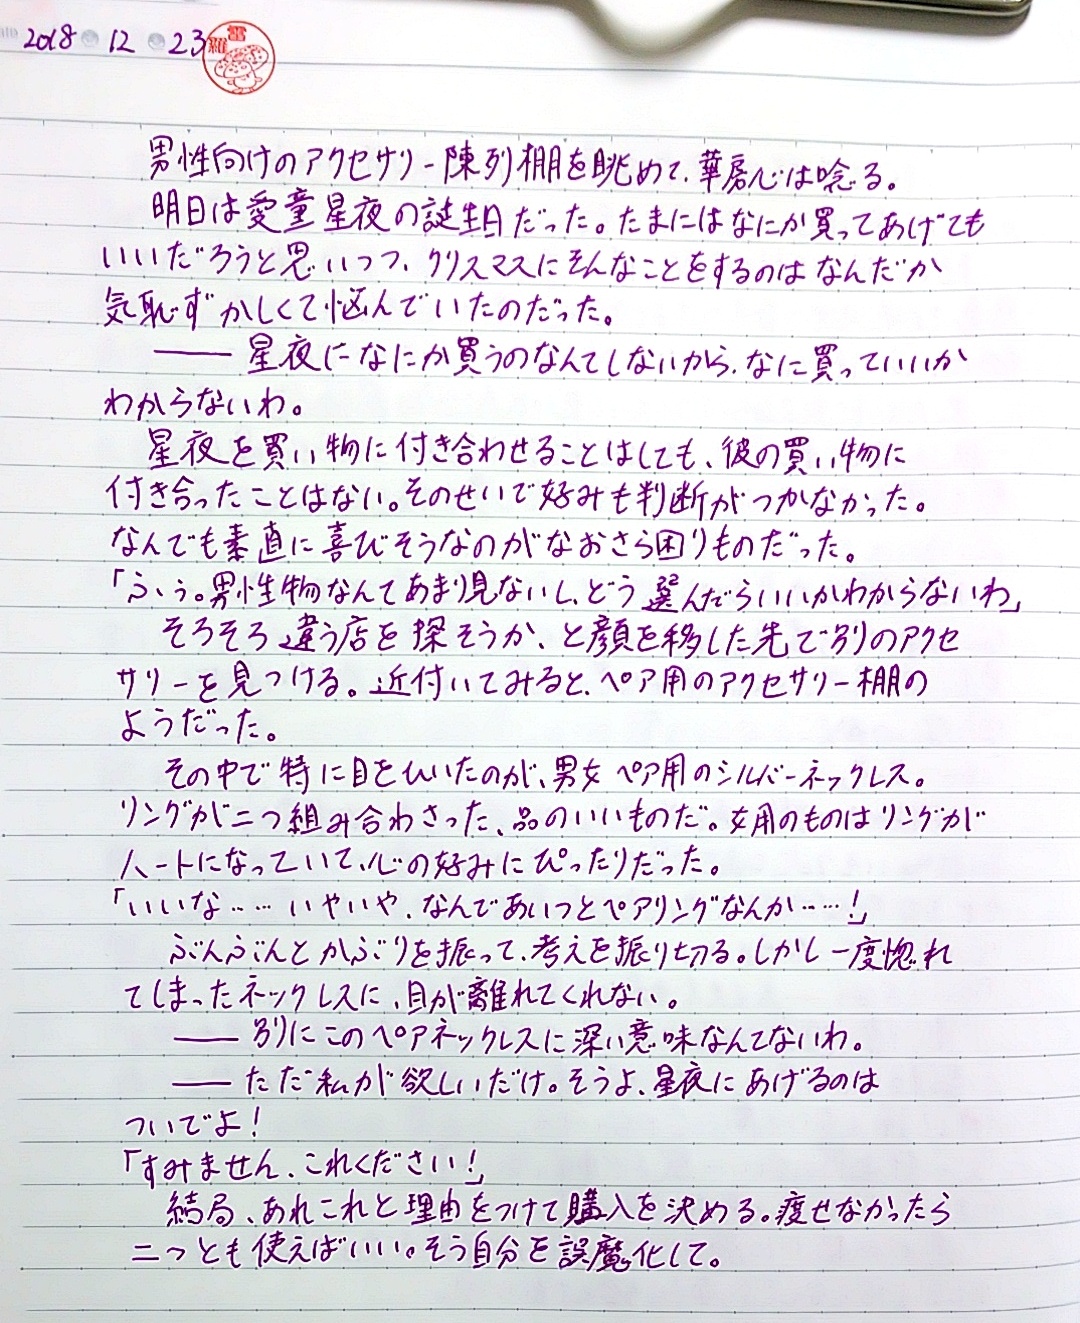 2018 12 23 雷羅
男性向けのアクセサリー陳列棚を眺めて、華房心は唸る。
明日は愛童星夜の誕生日だった。たまにはなにか買ってあげても
いいだろうと思いつつ、クリスマスにそんなことをするのはなんだか
気恥ずかしくて悩んでいたのだった。
――星夜になにか買うのなんてしないから、なに買っていいか
わからないわ。
星夜を買い物に付き合わせることはしても、彼の買い物に
付き合ったことはない。そのせいで好みも判断がつかなかった。
なんでも素直に喜びそうなのがなおさら困りものだった。
「ふぅ。男性物なんてあまり見ないし、どう選んだらいいかわからないわ」
そろそろ違う店を探そうか、と顔を移した先で別のアクセ
サリーを見つける。近付いてみると、ペア用のアクセサリー棚の
ようだった。
その中で特に目をひいたのが、男女ペア用のシルバーネックレス。
リングが二つ組み合わさった、品のいいものだ。女用のものはリングが
ハートになっていて、心の好みにぴったりだった。
「いいな……いやいや、なんであいつとペアリングなんか……！」
ぶんぶんとかぶりを振って、考えを振り切る。しかし一度惚れ
てしまったネックレスに、目が離れてくれない。
――別にこのペアネックレスに深い意味なんてないわ。
――ただ私が欲しいだけ。そうよ、星夜にあげるのは
ついでよ！
「すみません、これください！」
結局、あれこれと理由をつけて購入を決める。痩せなかったら
二つとも使えばいい。そう自分を誤魔化して。